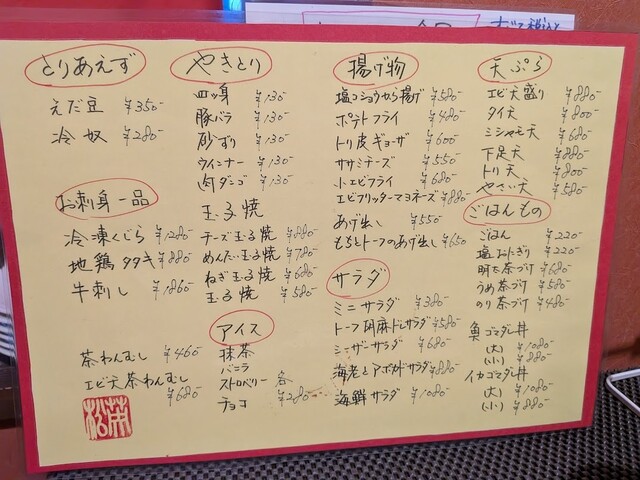 とりあえず
えだ豆 ¥350-
冷奴 ¥280-
お刺身一品
冷凍くじら ¥1280-
地鶏タタキ ¥880-
牛刺し ¥1860-
茶わんむし ¥460-
エビ天茶わんむし
¥680-
やきとり
四ッ身 ¥130-
豚バラ ¥130-
砂ずり ¥130-
ウインナー ¥130-
肉ダンゴ ¥130-
玉子焼
チーズ玉子焼 ¥880-
めんたい玉子焼 ¥780-
ねぎ玉子焼 ¥680-
玉子焼 ¥580-
アイス
抹茶
バニラ
ストロベリー 各
チョコ ¥280-
揚げ物
塩コショウから揚げ ¥580-
ポテトフライ ¥480-
トリ皮ギョーザ ¥600-
ササミチーズ ¥550-
小エビフライ ¥680-
エビフリッターマヨネーズ ¥880-
あげ出し ¥550
ももとトーフのあげ出し ¥650
サラダ
ミニサラダ ¥380-
トーフ胡麻ドレサラダ ¥580-
シーザーサラダ ¥680-
海老とアボカドサラダ ¥880-
海鮮サラダ ¥1080-
天ぷら
エビ天盛り ¥880-
タイ天 ¥800-
ミシャモ天 ¥680-
下足天 ¥880-
トリ天 ¥800-
やさい天 ¥580-
ごはんもの
ごはん ¥220-
塩おにぎり ¥220-
明太茶づけ ¥680-
うめ茶づけ ¥580-
のり茶づけ ¥480-
魚ゴマダレ丼
(大) ¥1080-
(小) ¥880-
イカゴマダレ丼
(大) ¥1080-
(小) ¥880-